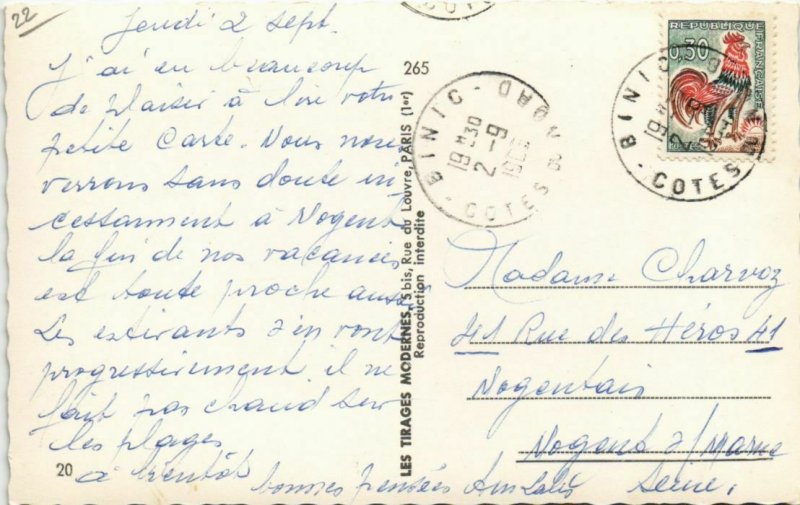 22
Jeudi 2 Sept.
J'ai eu beaucoup
de plaisir à lire votre
petite Carte. Nous nous
verrons sans doute in
cessamment à Nogent
la fin de nos vacances
est toute proche aussi
Les estivants s'en vont
progressivement il ne
fait pas chaud sur
les plages
à bientôt
bonnes pensées
265
20
LES TIRAGES MODERNES, 5 bis, Rue du Louvre, PARIS (1er)
Reproduction interdite
BINIC - COTES DU NORD
19H30
2 - 9
REPUBLIQUE FRANÇAISE
0,30
BINIC
COTES
Madame Charvoz
41 Rue des Héros 41
Nogentais
Nogent s/marne
Seine.